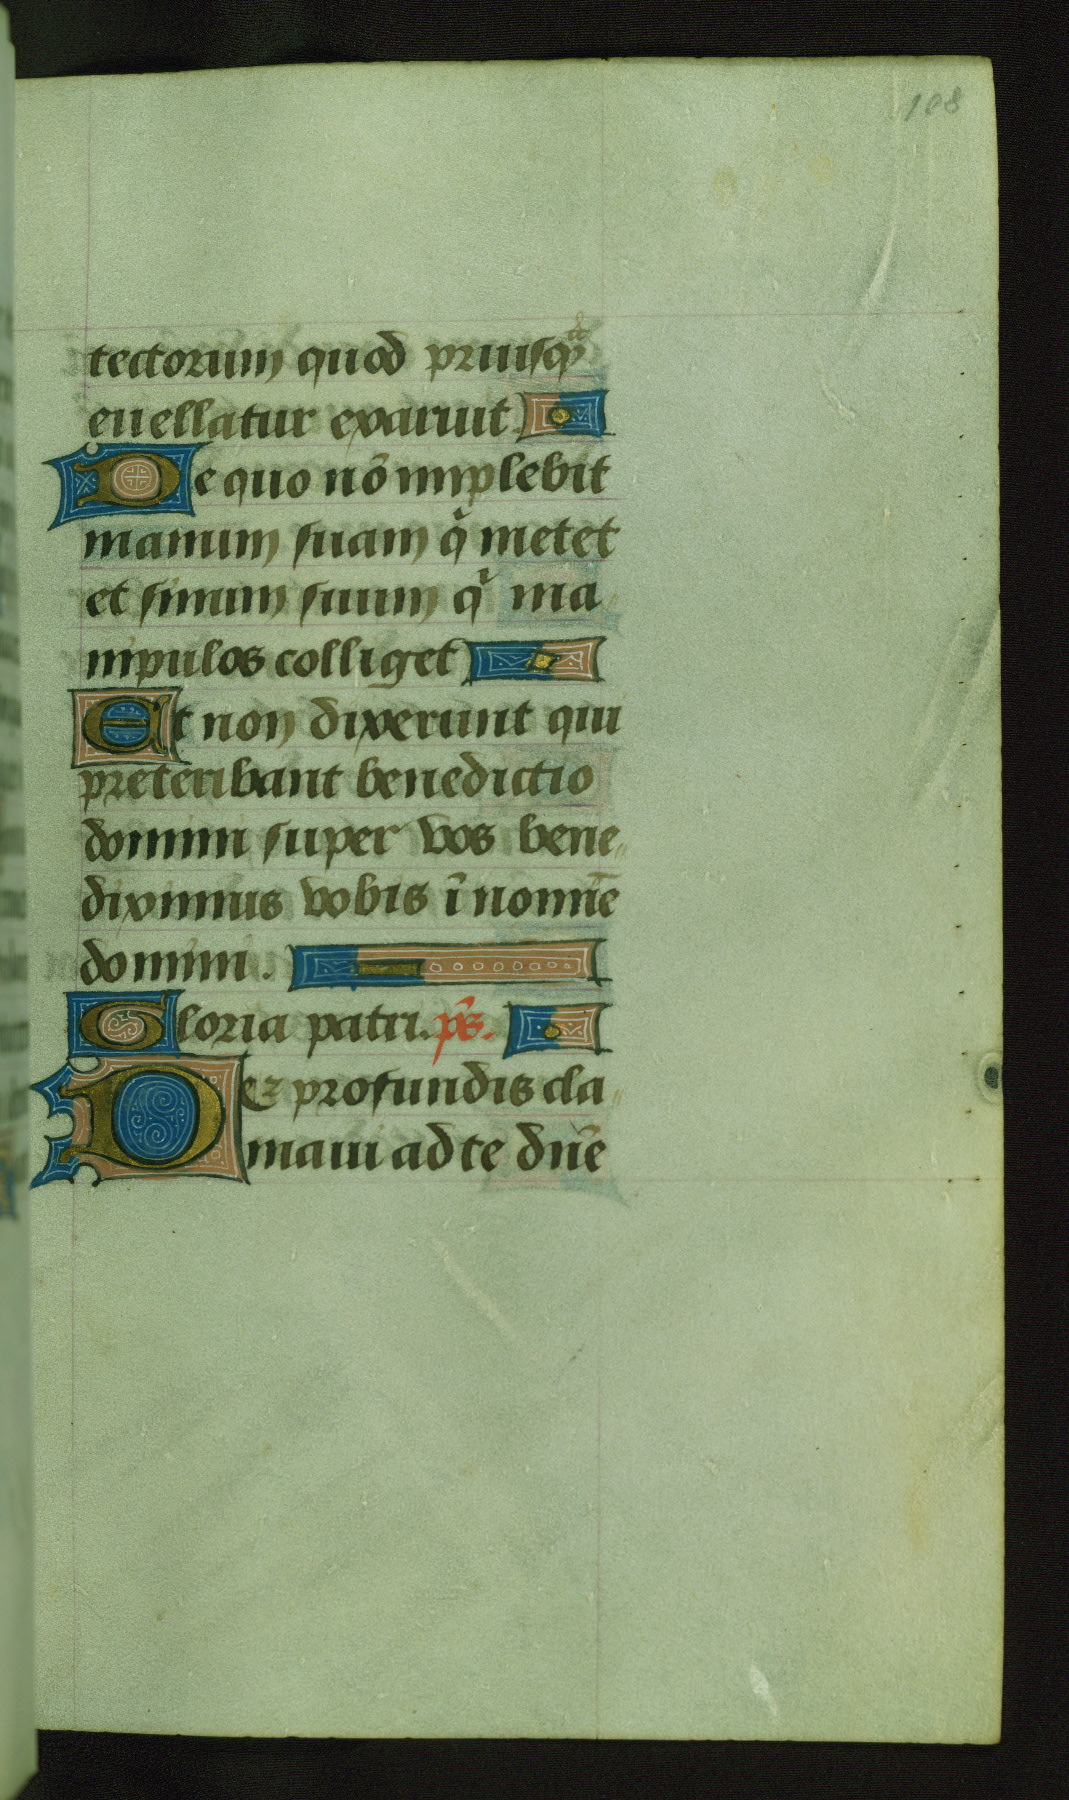 108
tectorum quod priusqᷓ
euellatur exaruit.
De quo nō implebit
manum suam qͥ metet
et sinum suum qͥ ma
nipulos colliget
Et non dixerunt qui
preteribant benedictio
domini super vos bene
diximus vobis ī nomīe
domini.
Gloria patri. p̄s.
De profundis cla
maui ad te dn̄e